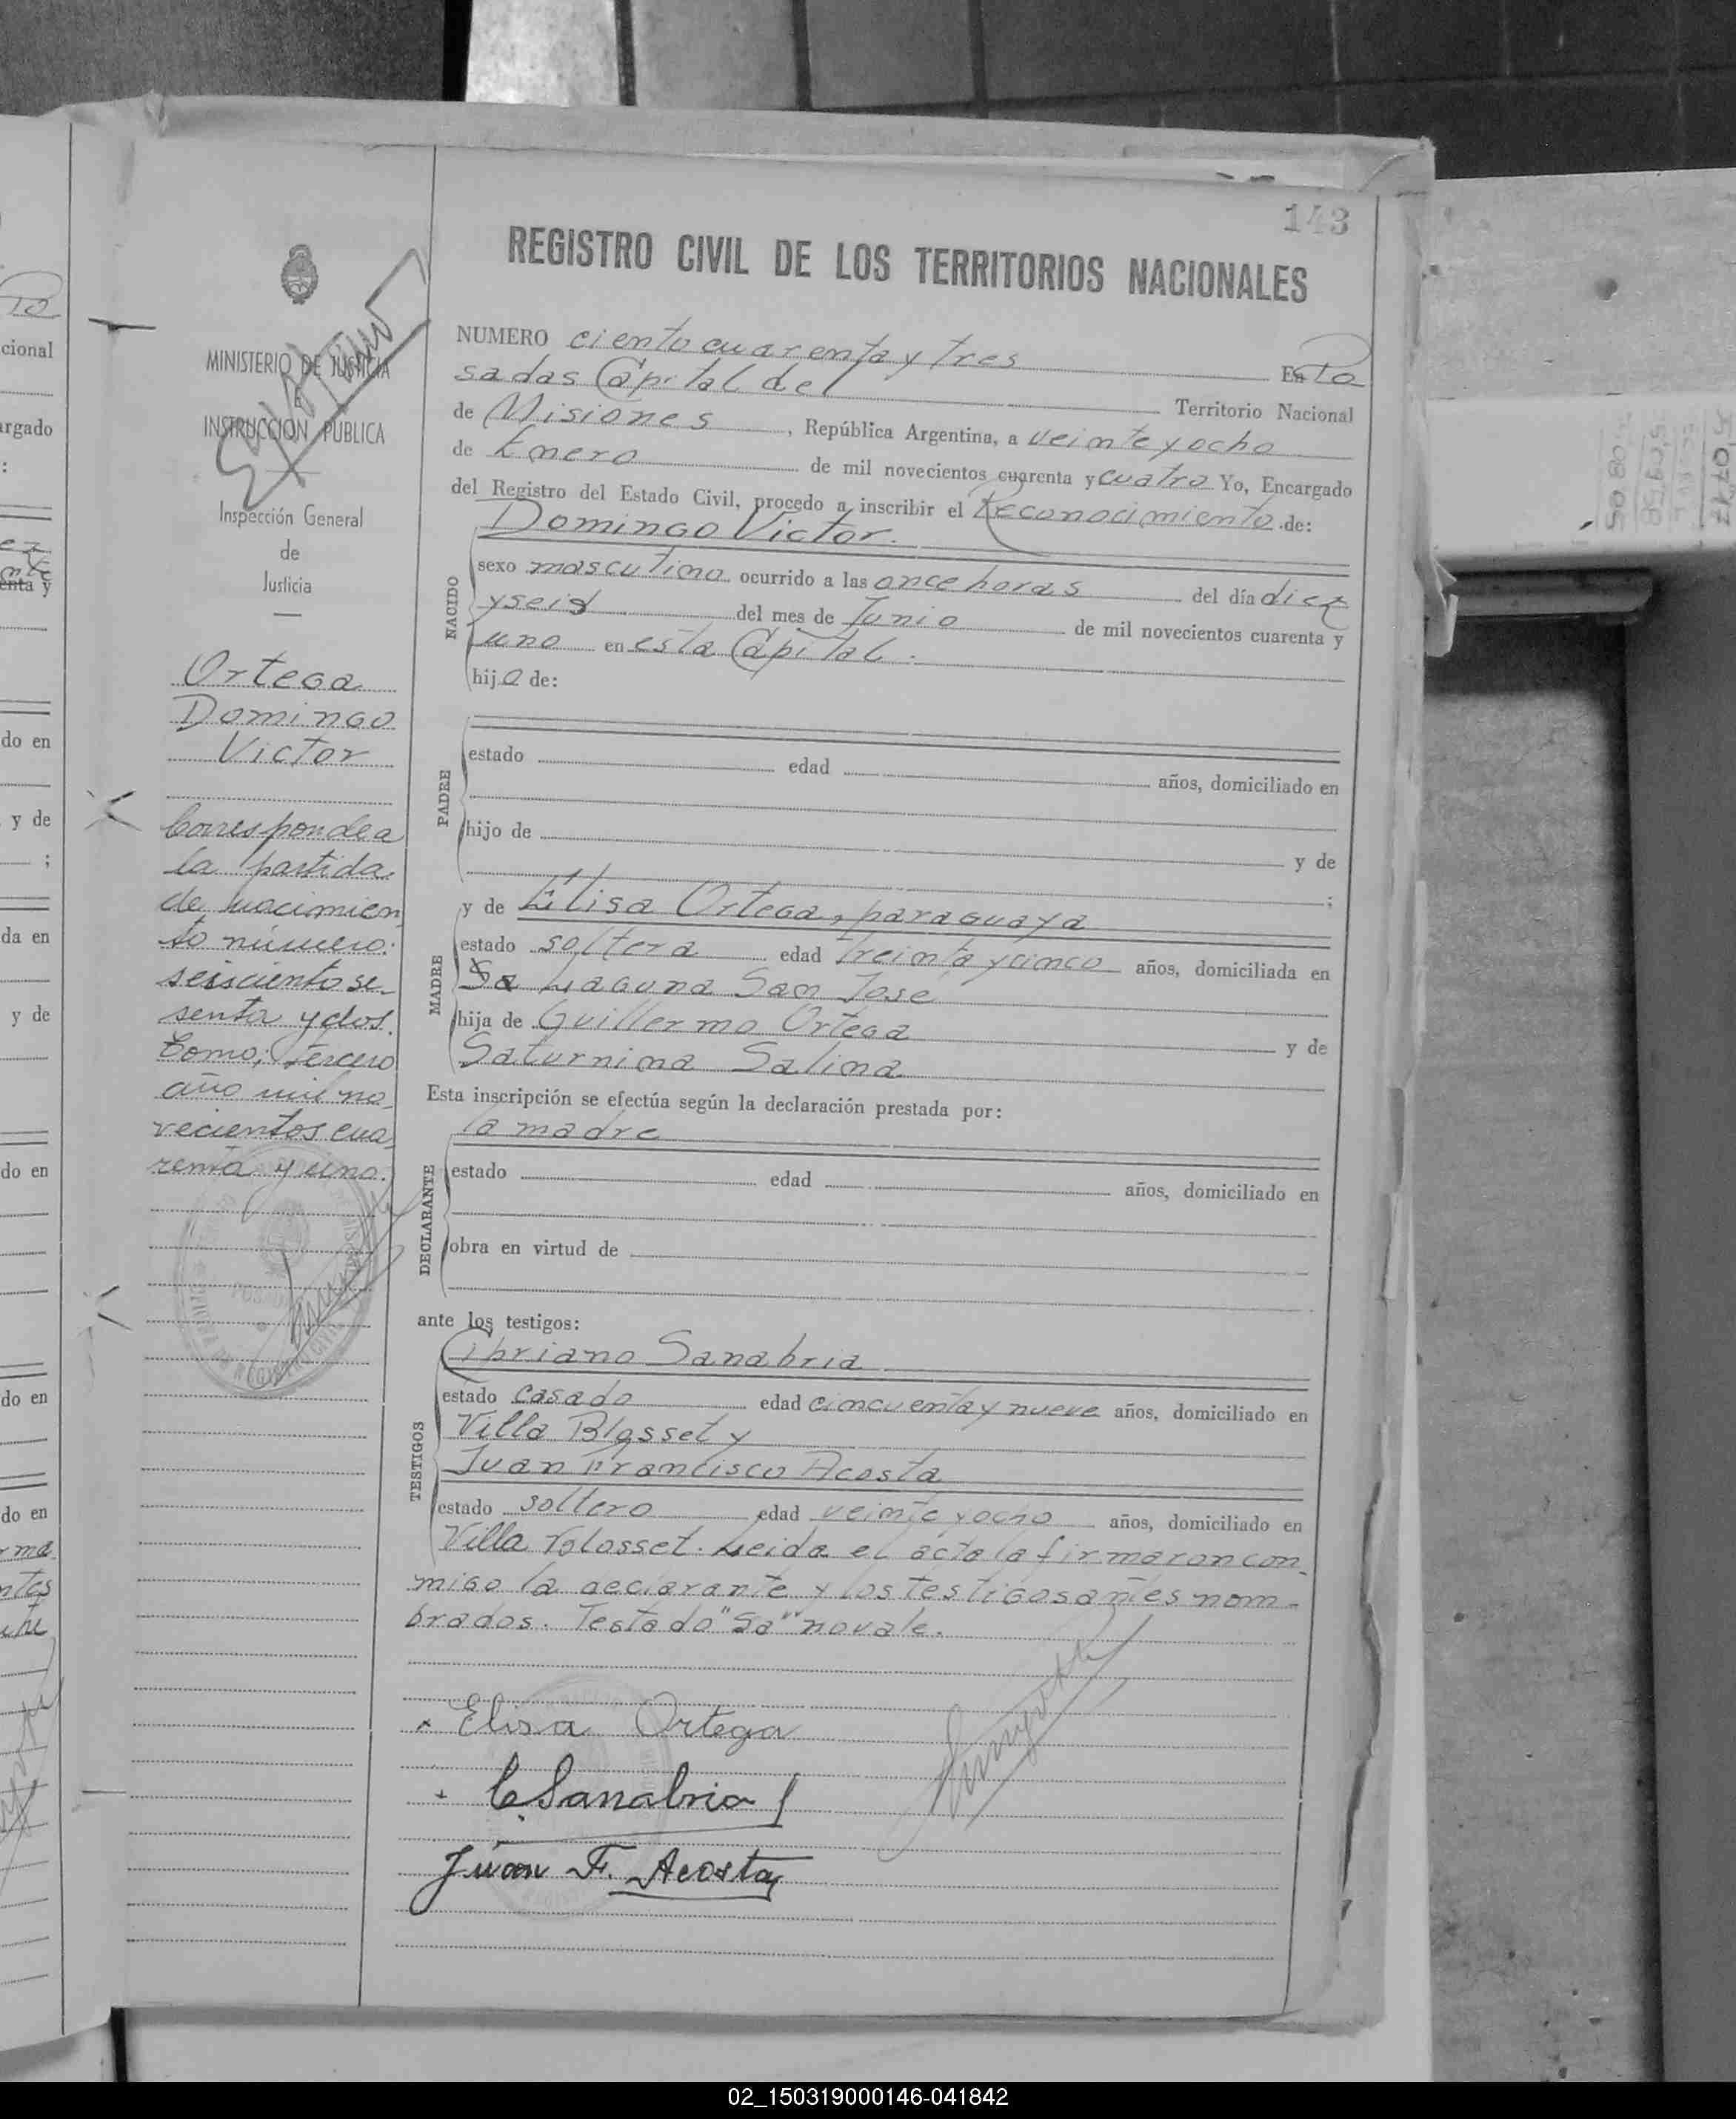 143
REGISTRO CIVIL DE LOS TERRITORIOS NACIONALES
MINISTERIO DE JUSTICIA
E
INSTRUCCION PUBLICA
Inspección General
de
Justicia
Ortega
Domingo
Victor
Corresponde a
la partida
de nacimien
to número:
seiscientos se-
senta y dos.
tomo: tercero
año mil no-
vecientos cua
renta y uno.
NUMERO ciento cuarenta y tres En Po
sadas Capital del Territorio Nacional
de Misiones, República Argentina, a veinte y ocho
de Enero de mil novecientos cuarenta y cuatro Yo, Encargado
del Registro del Estado Civil, procedo a inscribir el Reconocimiento de:
Domingo Victor.
NACIDO
sexo masculino ocurrido a las once horas del día diez
y seis del mes de Junio de mil novecientos cuarenta y
uno en esta Capital.
hijo de:
PADRE
estado edad años, domiciliado en
hijo de y de
;
MADRE
y de Elisa Ortega, paraguaya
estado soltera edad treinta y cinco años, domiciliada en
Sa Laguna San José
hija de Guillermo Ortega y de
Saturnina Salina
Esta inscripción se efectúa según la declaración prestada por:
la madre
DECLARANTE
estado edad años, domiciliado en
obra en virtud de
ante los testigos:
TESTIGOS
Cipriano Sanabria
estado casado edad cincuenta y nueve años, domiciliado en
Villa Blosset y
Juan Francisco Acosta
estado soltero edad veinte y ocho años, domiciliado en
Villa Blosset. Leida el acta la firmaron con
migo la declarante y los testigos antes nom-
brados. Testado "Sa" no vale.
Elisa Ortega
C Sanabria
Juan F. Acosta
02_150319000146-041842